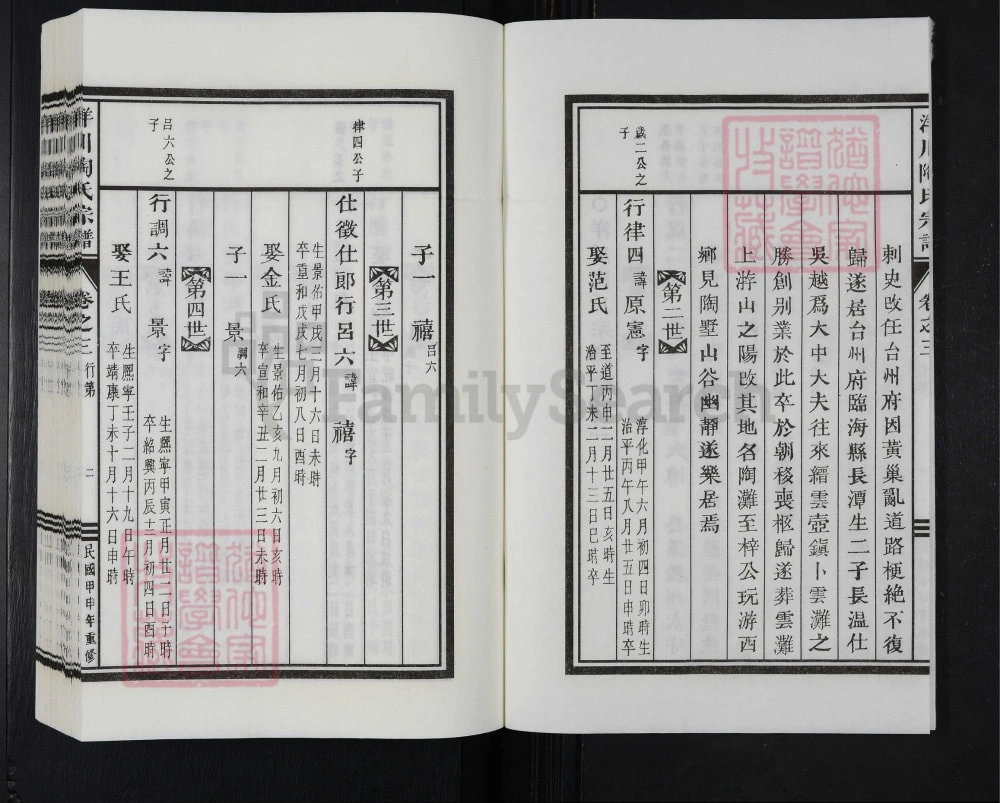 刺史改任台州府因黃巢亂道路梗絶不復
歸遂居台州府臨海縣長潭生二子長温仕
吳越爲大中大夫往來縉雲壺鎭卜雲灘之
勝創别業於此卒於朝移喪柩歸遂葬雲灘
上游山之陽改其地名陶灘至梓公玩游西
鄉見陶墅山谷幽靜遂樂居焉
第二世
歲二公之子
行律四諱原憲字
淳化甲午六月初四日卯時生
治平丙午八月廿五日申時卒
娶范氏
至道丙申二月廿五日亥時生
治平丁未二月十三日巳時卒
子一 禧 呂六
第三世
律四公子
仕徵仕郎行呂六諱 禧字
生景佑甲戌三月十六日未時
卒重和戊戌七月初八日酉時
娶金氏
生景佑乙亥九月初六日亥時
卒宣和辛丑二月廿三日未時
子一 景 調六
第四世
呂六公之子
行調六諱 景字
生熙寧甲寅正月廿二日子時
卒紹興丙辰十二月初四日酉時
娶王氏
生熙寧壬子二月十九日午時
卒靖康丁未十月十六日申時
洋川陶氏宗譜
卷之三
行第
二
民國甲申年重修
洋川陶氏宗譜
卷之三
FamilySearch